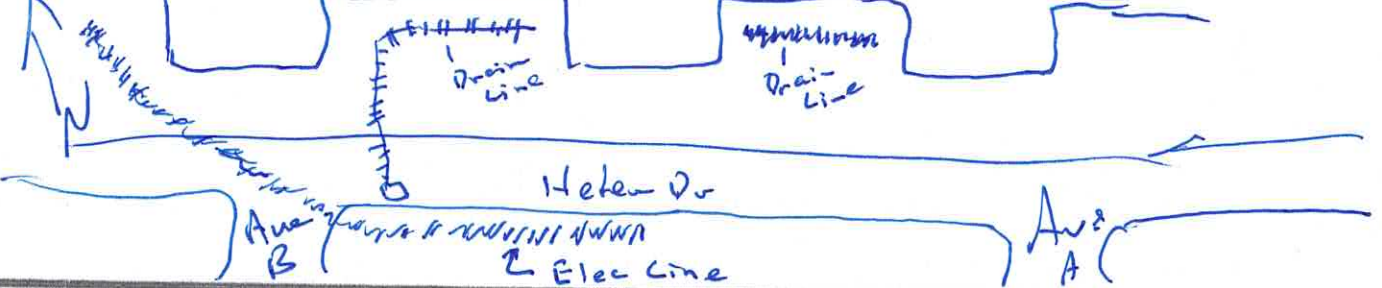 N
Drain
Line
Drain
Line
Helen Dr
Ave
B
Ave
A
Elec Line